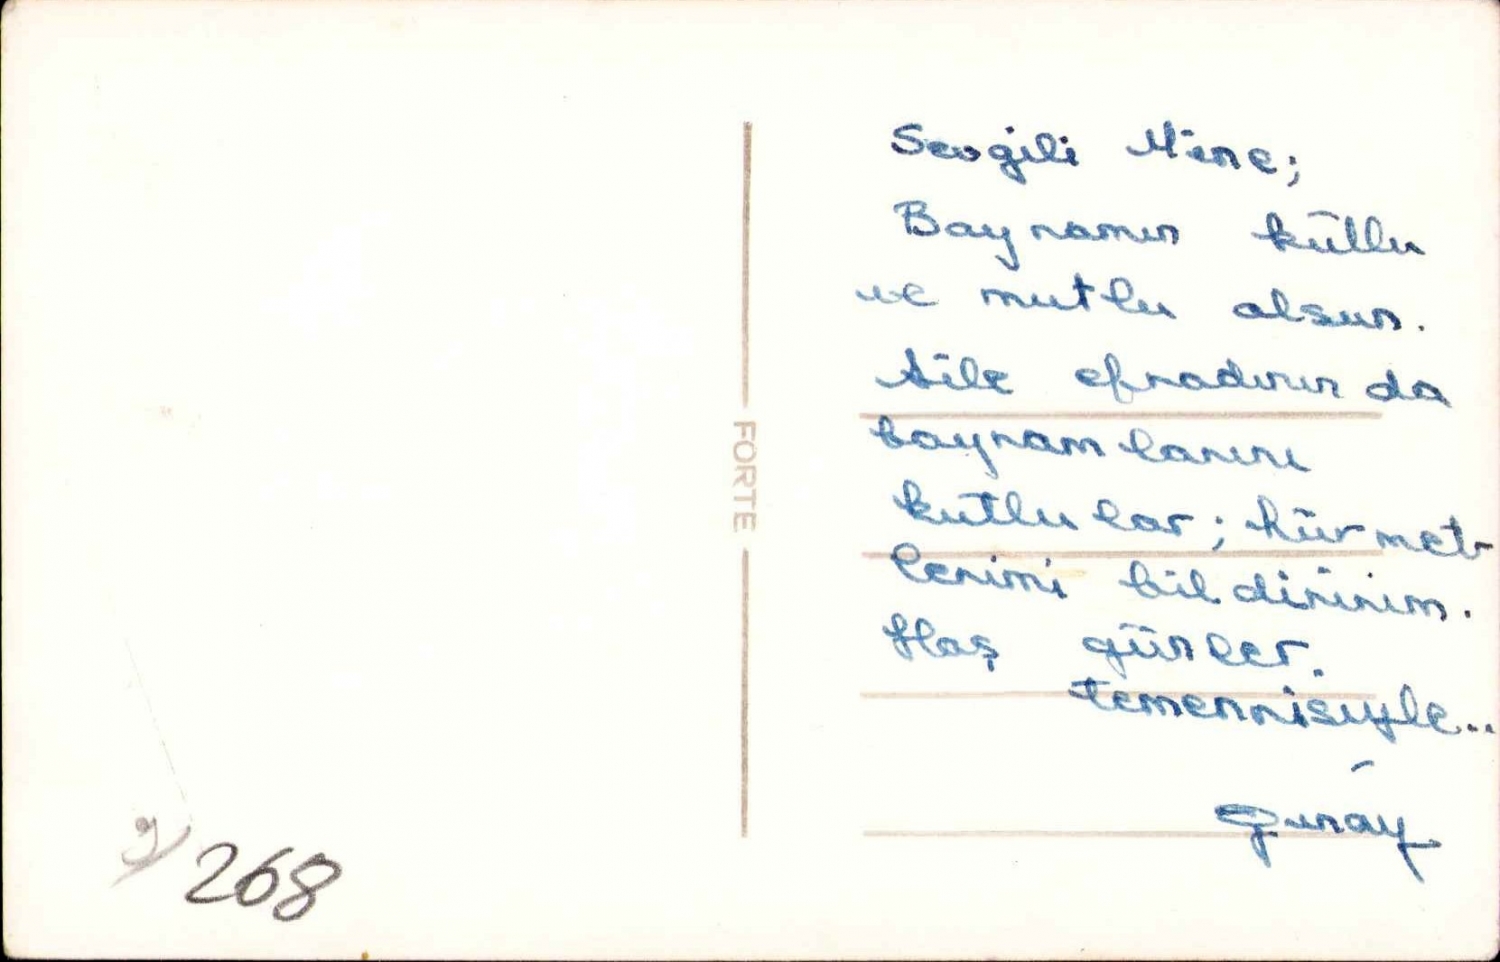 Sevgili Mine;
Bayramın kûtlu
ve mutlu olsun.
Aile efradının da
bayramlarını
kutlular; hürmet-
lerimi bildiririm.
Hoş günler.
temennisiyle..
Günay
FORTE
268